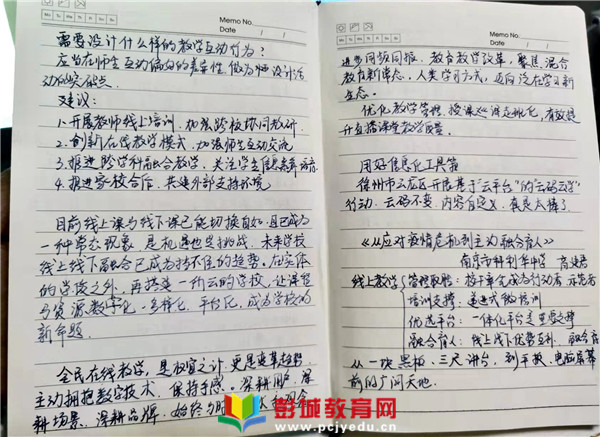 Memo No.
Mo Tu We Th Fr Sa Su
Date
需要设计什么样的教学互动行为?
应当在师生互动偏向的差异性,做为师设计活
动的突破点
建议:
1.开展教师线上培训,加强跨校协同教研
2.创新在线教学模式,加强师生互动交流
3.推进跨学科融合教学,关注学生信息素养培育
4.推进家校合作,共建外部支持环境
目前线上课与线下课已能切换自如,且已成为
一种常态现象,是机遇也是挑战,未来学校
线上线下融合已成为挡不住的趋势。在实体
的学校之外,再搭建一所云的学校,让课程
与资源数字化、多样化、平台化,成为学校的
新命题.
全民在线教学,是权宜之计,更是变革趋势
主动拥抱数字技术,保持手感。深耕用户,深
耕场景、深耕品牌,始终与时
Memo No.
Mo Tu We Th Fr Sa Su
Date
进步同频同振,教育教学改革,聚焦混合
教育新常态,人类学习方式,迈向泛在学习新
生态.
优化教学管理,授课
升直播课堂教学质量.
用好信息化工具箱
徐州市云龙区开展基于"云平台"的"云码云学"
行动,云码不变,内容自定义,真是太棒了.
《从应对疫情危机到主动融合育人》
南京市科利华中学
线上教学
管理赋能:校干率先成为行动者、示范者
培训支撑:递进式微培训
优选平台:一体化平台是重要支撑
融合育人:线上线下优势互补,融合育
从一块黑板、三尺讲台,到平板、电脑屏幕
前的广阔天地.
彭城教育网
www.pcjyedu.cn